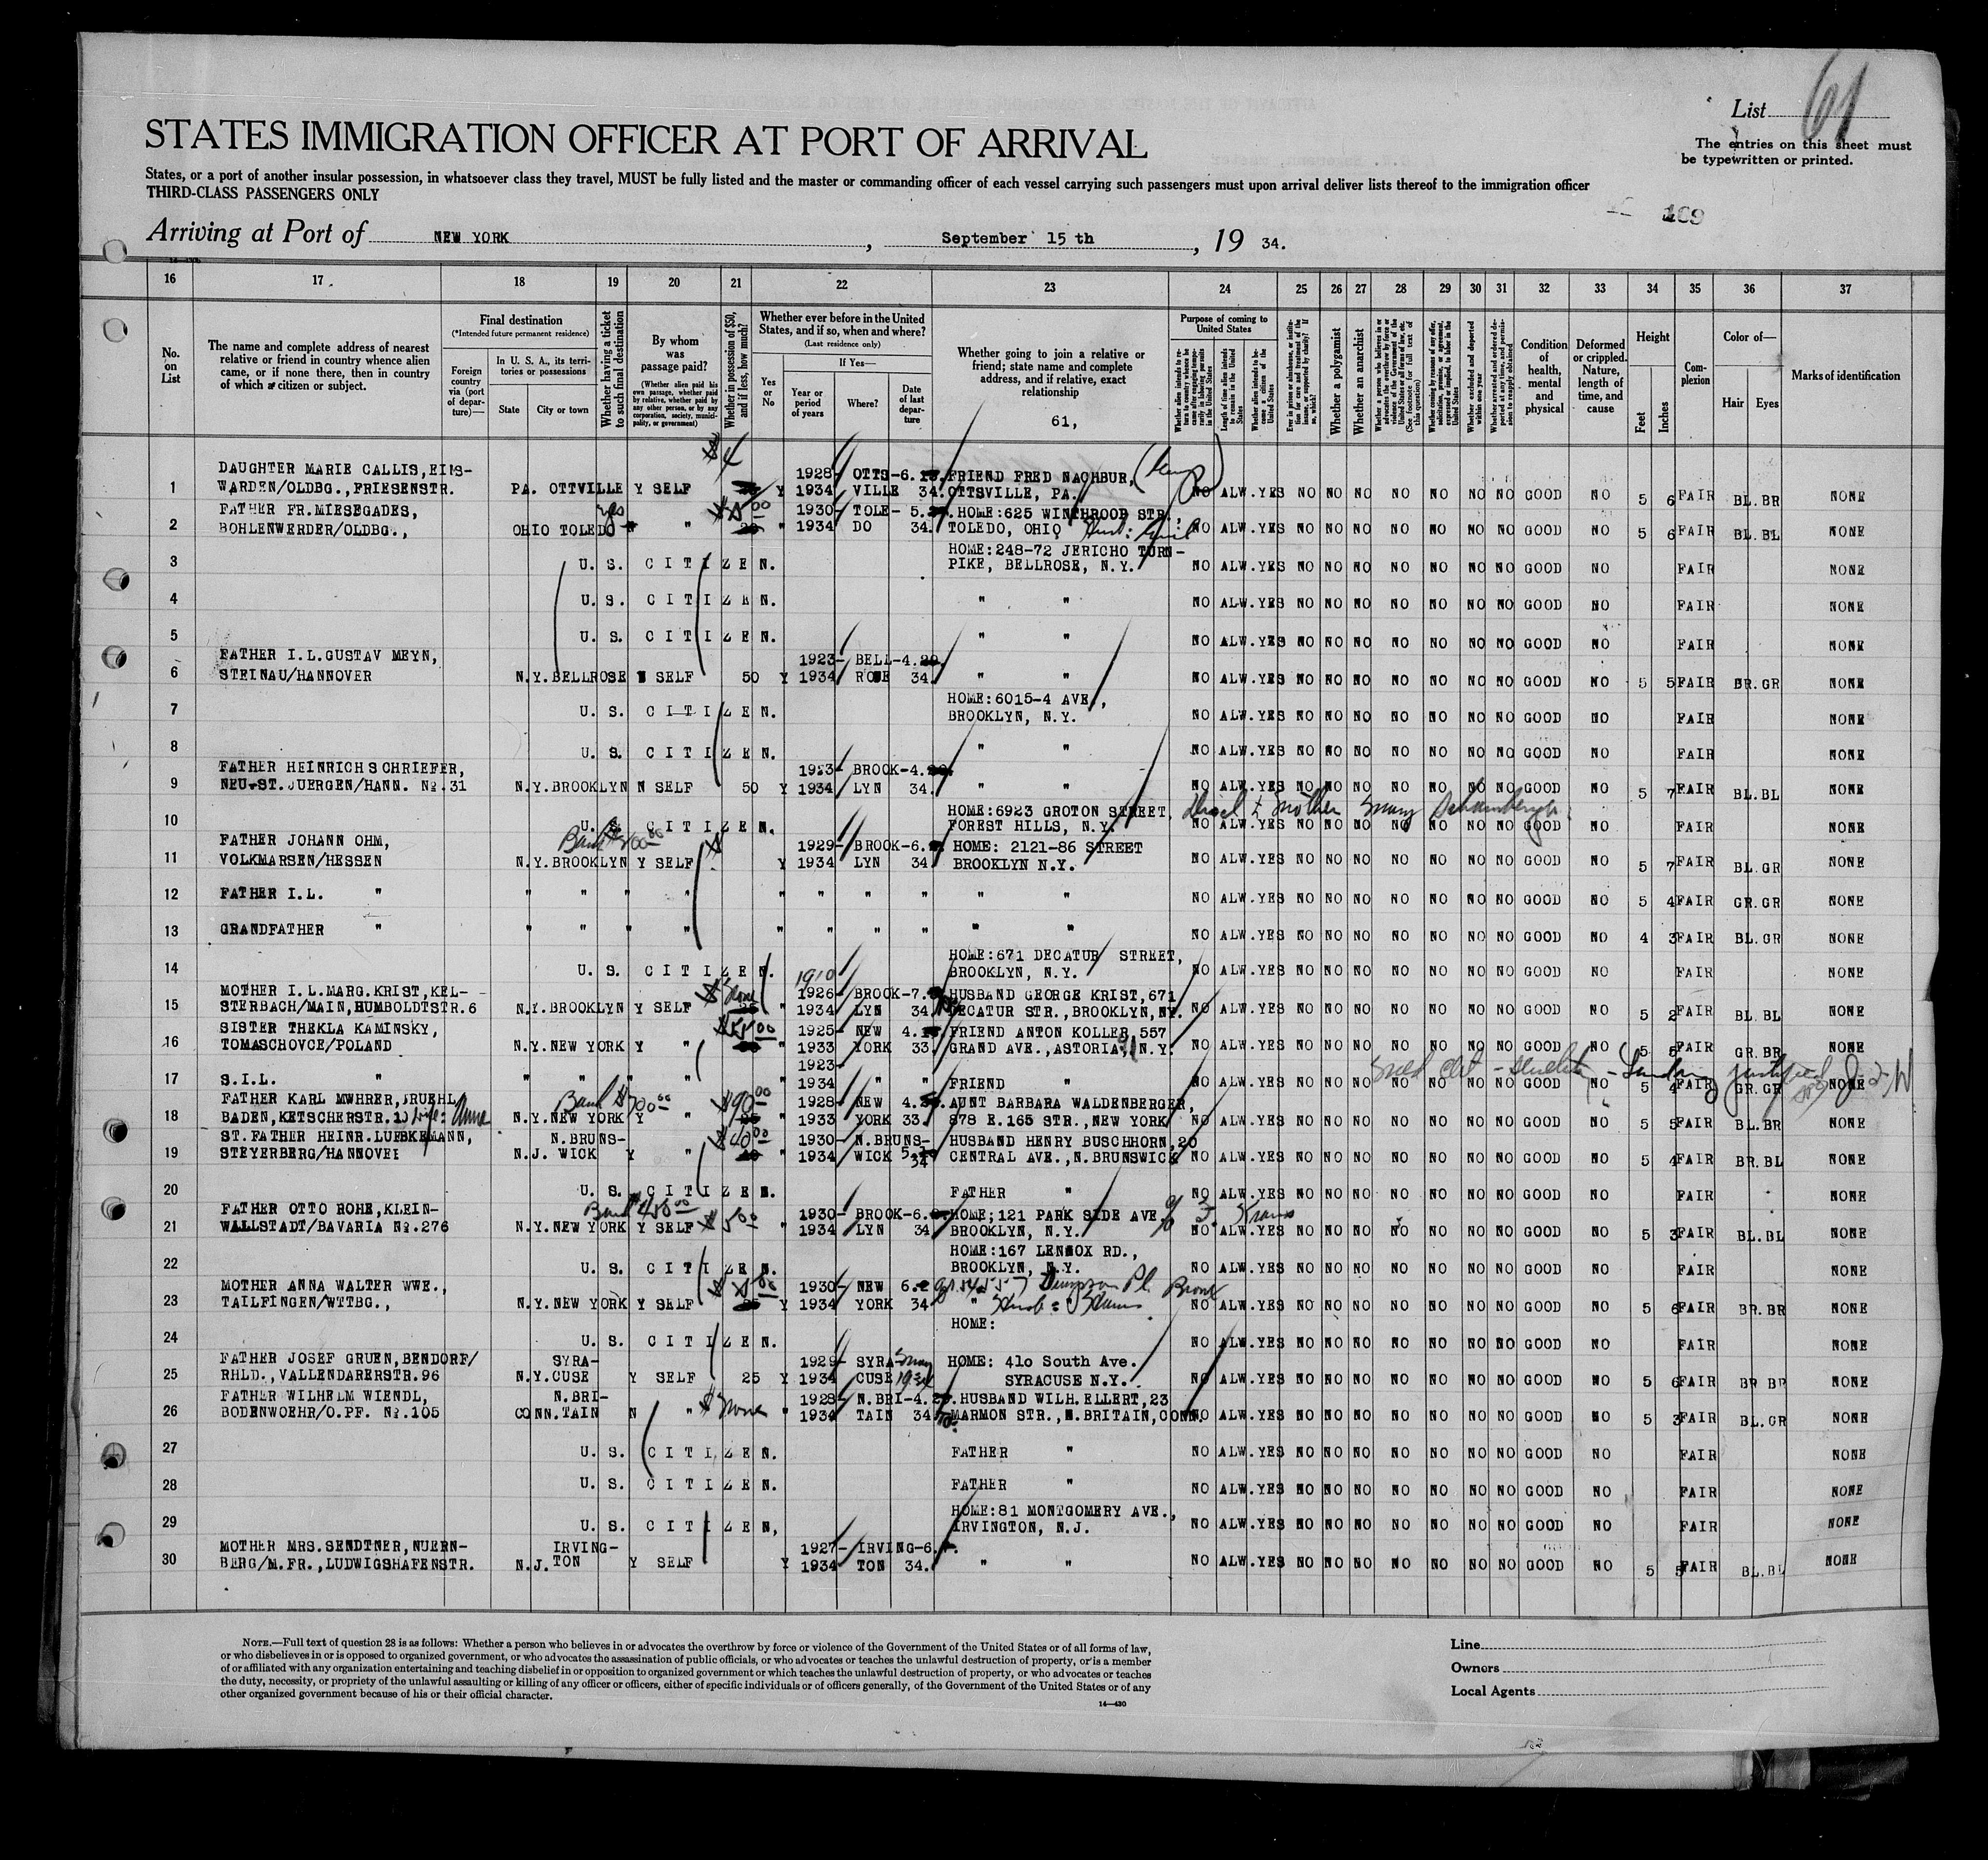 List 61
STATES IMMIGRATION OFFICER AT PORT OF ARRIVAL
The entries on this sheet must
be typewritten or printed.
States, or a port of another insular possession, in whatsoever class they travel, MUST be fully listed and the master or commanding officer of each vessel carrying such passengers must upon arrival deliver lists thereof to the immigration officer
THIRD-CLASS PASSENGERS ONLY
Arriving at Port of NEW YORK, September 15 th, 19 34.
16 17 18 19 20 21 22 23 24 25 26 27 28 29 30 31 32 33 34 35 36 37
No. on List
The name and complete address of nearest relative or friend in country whence alien came, or if none there, then in country of which a citizen or subject.
Final destination
(*Intended future permanent residence)
Foreign country via (port of departure)—
In U. S. A., its territories or possessions
State
City or town
Whether having a ticket to such final destination
By whom was passage paid?
(Whether alien paid his own passage, whether paid by relative, whether paid by any other person, or by any corporation, society, municipality, or government)
Whether in possession of $50, and if less, how much?
Whether ever before in the United States, and if so, when and where?
(Last residence only)
Yes or No
If Yes—
Year or period of years
Where?
Date of last departure
Whether going to join a relative or friend; state name and complete address, and if relative, exact relationship
61,
Purpose of coming to United States
Whether a polygamist
Whether an anarchist
Condition of health, mental and physical
Deformed or crippled. Nature, length of time, and cause
Height
Feet
Inches
Complexion
Color of—
Hair
Eyes
Marks of identification
1 DAUGHTER MARIE CALLIS, WARDEN/OLDBG., FRIESENSTR. PA. OTTVILLE Y SELF $4 Y 1928-1934 OTTSVILLE 34. FRIEND FRED NACHBUR, OTTSVILLE, PA. NO ALW. YES NO NO NO NO NO NO NO GOOD NO 5 6 FAIR BL. BR NONE
2 FATHER FR. MIESEGADES, BOHLENWERDER/OLDBG., OHIO TOLEDO yes " " 1930-1934 TOLEDO 34. HOME:625 WINTHROOP STR., TOLEDO, OHIO NO ALW. YES NO NO NO NO NO NO NO GOOD NO 5 6 FAIR BL. BL NONE
3 U. S. CITIZEN. HOME:248-72 JERICHO TURN-PIKE, BELLROSE, N.Y. NO ALW. YES NO NO NO NO NO NO NO GOOD NO FAIR NONE
4 U. S. CITIZEN. " " NO ALW. YES NO NO NO NO NO NO NO GOOD NO FAIR NONE
5 U. S. CITIZEN. " " NO ALW. YES NO NO NO NO NO NO NO GOOD NO FAIR NONE
6 FATHER I.L. GUSTAV MEYN, STEINAU/HANNOVER N.Y. BELLROSE N SELF 50 Y 1923-1934 BELLROSE 4. 34. " " NO ALW. YES NO NO NO NO NO NO NO GOOD NO 5 5 FAIR BR. GR NONE
7 U. S. CITIZEN. HOME:6015-4 AVE., BROOKLYN, N.Y. NO ALW. YES NO NO NO NO NO NO NO GOOD NO FAIR NONE
8 U. S. CITIZEN. " " NO ALW. YES NO NO NO NO NO NO NO GOOD NO FAIR NONE
9 FATHER HEINRICH SCHRIEFER, NEU-ST. JUERGEN/HANN. No. 31 N.Y. BROOKLYN N SELF 50 Y 1923-1934 BROOKLYN 4. 34. " " NO ALW. YES NO NO NO NO NO NO NO GOOD NO 5 7 FAIR BL. BL NONE
10 U. S. CITIZEN. HOME:6923 GROTON STREET, FOREST HILLS, N.Y. NO ALW. YES NO NO NO NO NO NO NO GOOD NO FAIR NONE
11 FATHER JOHANN OHM, VOLKMARSEN/HESSEN N.Y. BROOKLYN Y SELF Y 1929-1934 BROOKLYN 6. 34 HOME: 2121-86 STREET BROOKLYN N.Y. NO ALW. YES NO NO NO NO NO NO NO GOOD NO 5 7 FAIR BL. GR NONE
12 FATHER I.L. " " " " " " " " " " " NO ALW. YES NO NO NO NO NO NO NO GOOD NO 5 4 FAIR GR. GR NONE
13 GRANDFATHER " " " " " " " " " " " NO ALW. YES NO NO NO NO NO NO NO GOOD NO 4 3 FAIR BL. GR NONE
14 U. S. CITIZEN. HOME:671 DECATUR STREET, BROOKLYN, N.Y. NO ALW. YES NO NO NO NO NO NO NO GOOD NO FAIR NONE
15 MOTHER I.L. MARG. KRIST, KEL-STERBACH/MAIN, HUMBOLDTSTR. 6 N.Y. BROOKLYN Y SELF $ None " 1910 1926-1934 BROOKLYN 7. 34. HUSBAND GEORGE KRIST, 671 DECATUR STR., BROOKLYN, NY. NO ALW. YES NO NO NO NO NO NO NO GOOD NO 5 2 FAIR BL. BL NONE
16 SISTER THEKLA KAMINSKY, TOMASCHOVCE/POLAND N.Y. NEW YORK Y " " 1925-1933 NEW YORK 4. 33. FRIEND ANTON KOLLER, 557 GRAND AVE., ASTORIA, N.Y. NO ALW. YES NO NO NO NO NO NO NO GOOD NO 5 5 FAIR GR. BR NONE
17 S.I.L. " " " " " " 1923-1934 " " FRIEND " NO ALW. YES NO NO NO NO NO NO NO GOOD NO 5 4 FAIR GR. GR NONE
18 FATHER KARL MWHRER, BRUEHL/BADEN, KETSCHERSTR. wife: Anna N.Y. NEW YORK Y " Bank $700.00 $90.00 " 1928-1933 NEW YORK 4. 33. AUNT BARBARA WALDENBERGER, 878 E. 165 STR., NEW YORK NO ALW. YES NO NO NO NO NO NO NO GOOD NO 5 5 FAIR BL. BR NONE
19 ST. FATHER HEINR. LUEBKEMANN, STEYERBERG/HANNOVER N.J. N. BRUNS-WICK Y " $40.00 " 1930-1934 N. BRUNS-WICK 5. 34 HUSBAND HENRY BUSCHHORN, 20 CENTRAL AVE., N. BRUNSWICK NO ALW. YES NO NO NO NO NO NO NO GOOD NO 5 4 FAIR BR. BL NONE
20 U. S. CITIZEN. FATHER " NO ALW. YES NO NO NO NO NO NO NO GOOD NO FAIR NONE
21 FATHER OTTO ROHE, KLEIN-WALLSTADT/BAVARIA No. 276 N.Y. NEW YORK Y SELF $5.00 " 1930-1934 BROOKLYN 6. 34 HOME; 121 PARK SIDE AVE. BROOKLYN, N.Y. NO ALW. YES NO NO NO NO NO NO NO GOOD NO 5 3 FAIR BL. BL NONE
22 U. S. CITIZEN. HOME:167 LENNOX RD., BROOKLYN, N.Y. NO ALW. YES NO NO NO NO NO NO NO GOOD NO FAIR NONE
23 MOTHER ANNA WALTER WWE., TAILFINGEN/WTTBG., N.Y. NEW YORK Y SELF Y 1930-1934 NEW YORK 6. 34 " Bronx NO ALW. YES NO NO NO NO NO NO NO GOOD NO 5 6 FAIR BR. BR NONE
24 U. S. CITIZEN. HOME: NO ALW. YES NO NO NO NO NO NO NO GOOD NO FAIR NONE
25 FATHER JOSEF GRUEN, BENDORF/RHLD., VALLENDARERSTR. 96 N.Y. SYRA-CUSE Y SELF 25 Y 1929-1934 SYRACUSE May 1934 HOME: 41o South Ave. SYRACUSE N.Y. NO ALW. YES NO NO NO NO NO NO NO GOOD NO 5 6 FAIR BR BR NONE
26 FATHER WILHELM WIENDL, BODENWOEHR/O.PF. No. 105 CONN. N. BRI-TAIN N " $ None " 1928-1934 N. BRI-TAIN 4. 34 HUSBAND WILH. ELLERT, 23 MARMON STR., N. BRITAIN, CONN. NO ALW. YES NO NO NO NO NO NO NO GOOD NO 5 3 FAIR BL. GR NONE
27 U. S. CITIZEN. FATHER " NO ALW. YES NO NO NO NO NO NO NO GOOD NO FAIR NONE
28 U. S. CITIZEN. FATHER " NO ALW. YES NO NO NO NO NO NO NO GOOD NO FAIR NONE
29 U. S. CITIZEN, HOME:81 MONTGOMERY AVE., IRVINGTON, N.J. NO ALW. YES NO NO NO NO NO NO NO GOOD NO FAIR NONE
30 MOTHER MRS. SENDTNER, NUERN-BERG/M. FR., LUDWIGSHAFENSTR. N.J. IRVING-TON Y SELF Y 1927-1934 IRVINGTON 6. 34. " " NO ALW. YES NO NO NO NO NO NO NO GOOD NO 5 5 FAIR BL. BL NONE
NOTE.—Full text of question 28 is as follows: Whether a person who believes in or advocates the overthrow by force or violence of the Government of the United States or of all forms of law,
or who disbelieves in or is opposed to organized government, or who advocates the assassination of public officials, or who advocates or teaches the unlawful destruction of property, or is a member
of or affiliated with any organization entertaining and teaching disbelief in or opposition to organized government or which teaches the unlawful destruction of property, or who advocates or teaches
the duty, necessity, or propriety of the unlawful assaulting or killing of any officer or officers, either of specific individuals or of officers generally, of the Government of the United States or of any
other organized government because of his or their official character.
14—430
Line
Owners
Local Agents